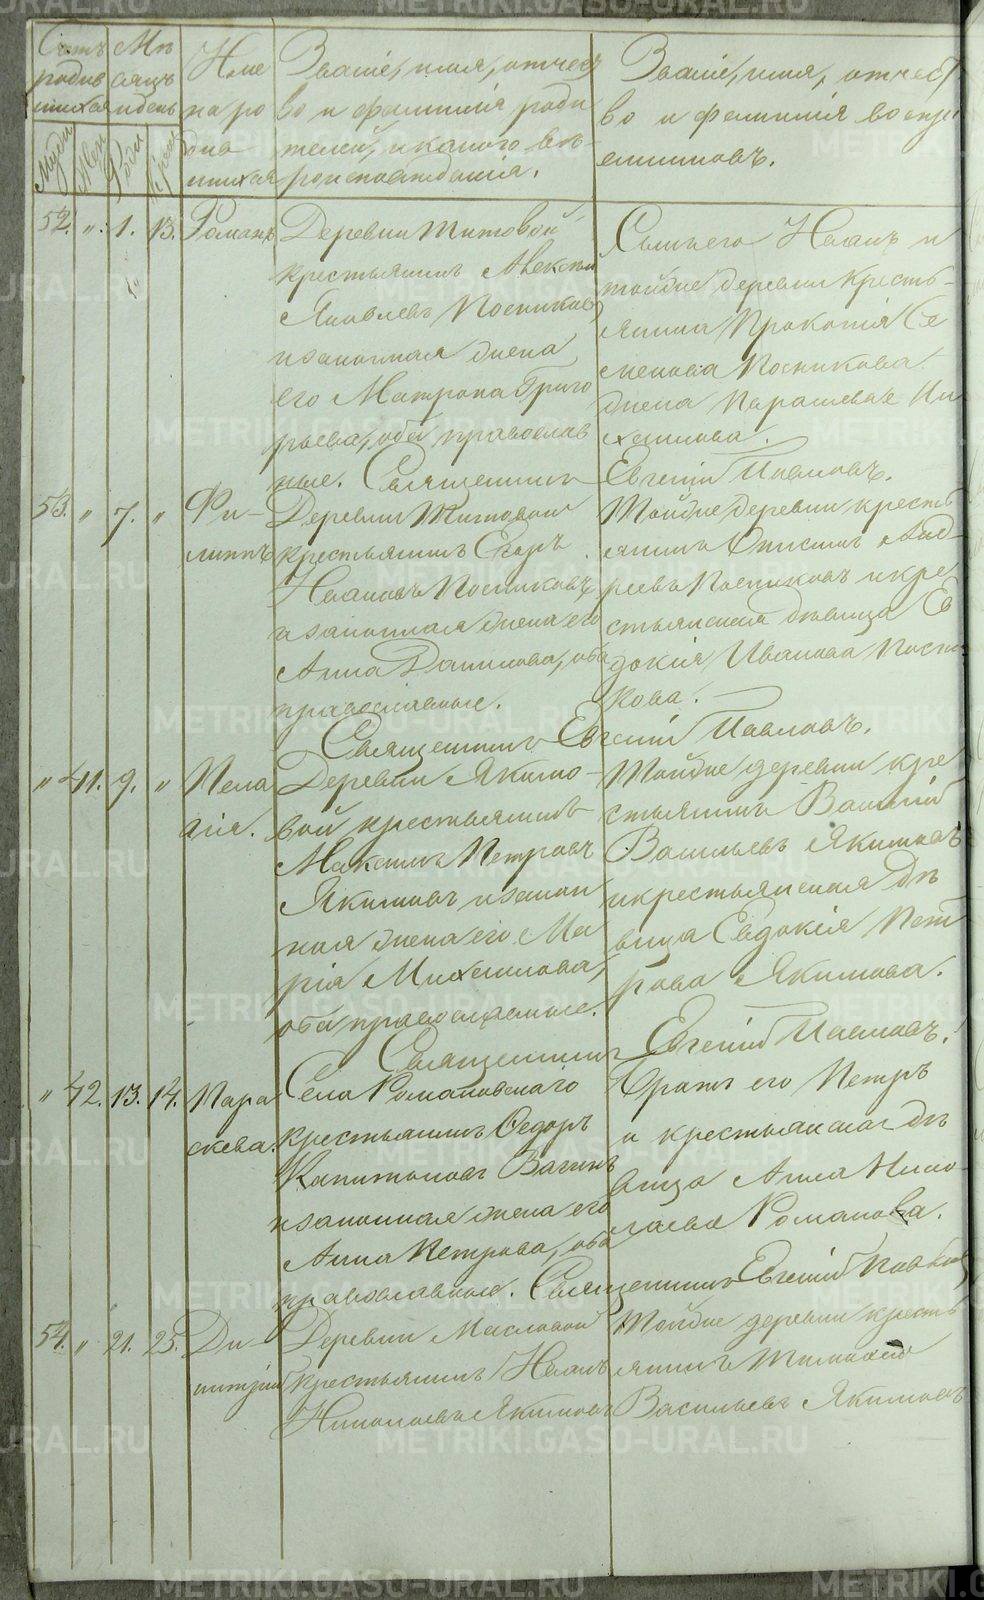 Счетъ родив шихся
Мѣ сяцъ и день
Име на ро див шихся
Званіе, имя, отчест во и фамилія роди телей, и какого вѣ роисповѣданія.
Званіе, имя, отчест во и фамилія воспри емниковъ.
52. " 1. 13. Романъ
Деревни Титовой
крестьянинъ
Яковлевъ Посниковъ
и законная жена
его Матрона Григо
рьева, оба православ
ные.
Сынъ его Иванъ и
тойже деревни кресть
янина Прокопія Се
менова Посникова
жена Параскева Ми
хаилова.
Священникъ Евгеній Павловъ.
53. " 7. " Фи-
липпъ
Деревни Титовой
крестьянинъ Егоръ
Ивановъ Посниковъ
и законная жена его
Анна Данилова, оба
православные.
Тойже деревни кресть
янинъ Анд
реевъ Посниковъ и кре
стьянская дѣвица Ев
докія Иванова Посни
кова.
Священникъ Евгеній Павловъ.
" 41. 9. " Пела
гія.
Деревни Якимо-
вой крестьянинъ
Максимъ Петровъ
Якимовъ и закон
ная жена его Ма
рія Михаилова,
оба православные.
Тойже деревни кре
стьянинъ Василій
Васильевъ Якимовъ
и крестьянская дѣ
вица Евдокія Пет
рова Якимова.
Священникъ Евгеній Павловъ.
" 42. 13. 14. Пара
скева.
Села Романовскаго
крестьянинъ Федоръ
Капитоновъ Вагинъ
и законная жена его
Анна Петрова, оба
православные.
Братъ его Петръ
и крестьянская дѣ
вица Анна Нико-
лаева Романова.
Священникъ Евгеній Павловъ
54. " 21. 25. Ди-
митрій
Деревни Масловой
крестьянинъ Иванъ
Николаевъ Якимовъ
Тойже деревни кресть
янинъ Тимофей
Васильевъ Якимовъ
METRIKI.GASO-URAL.RU